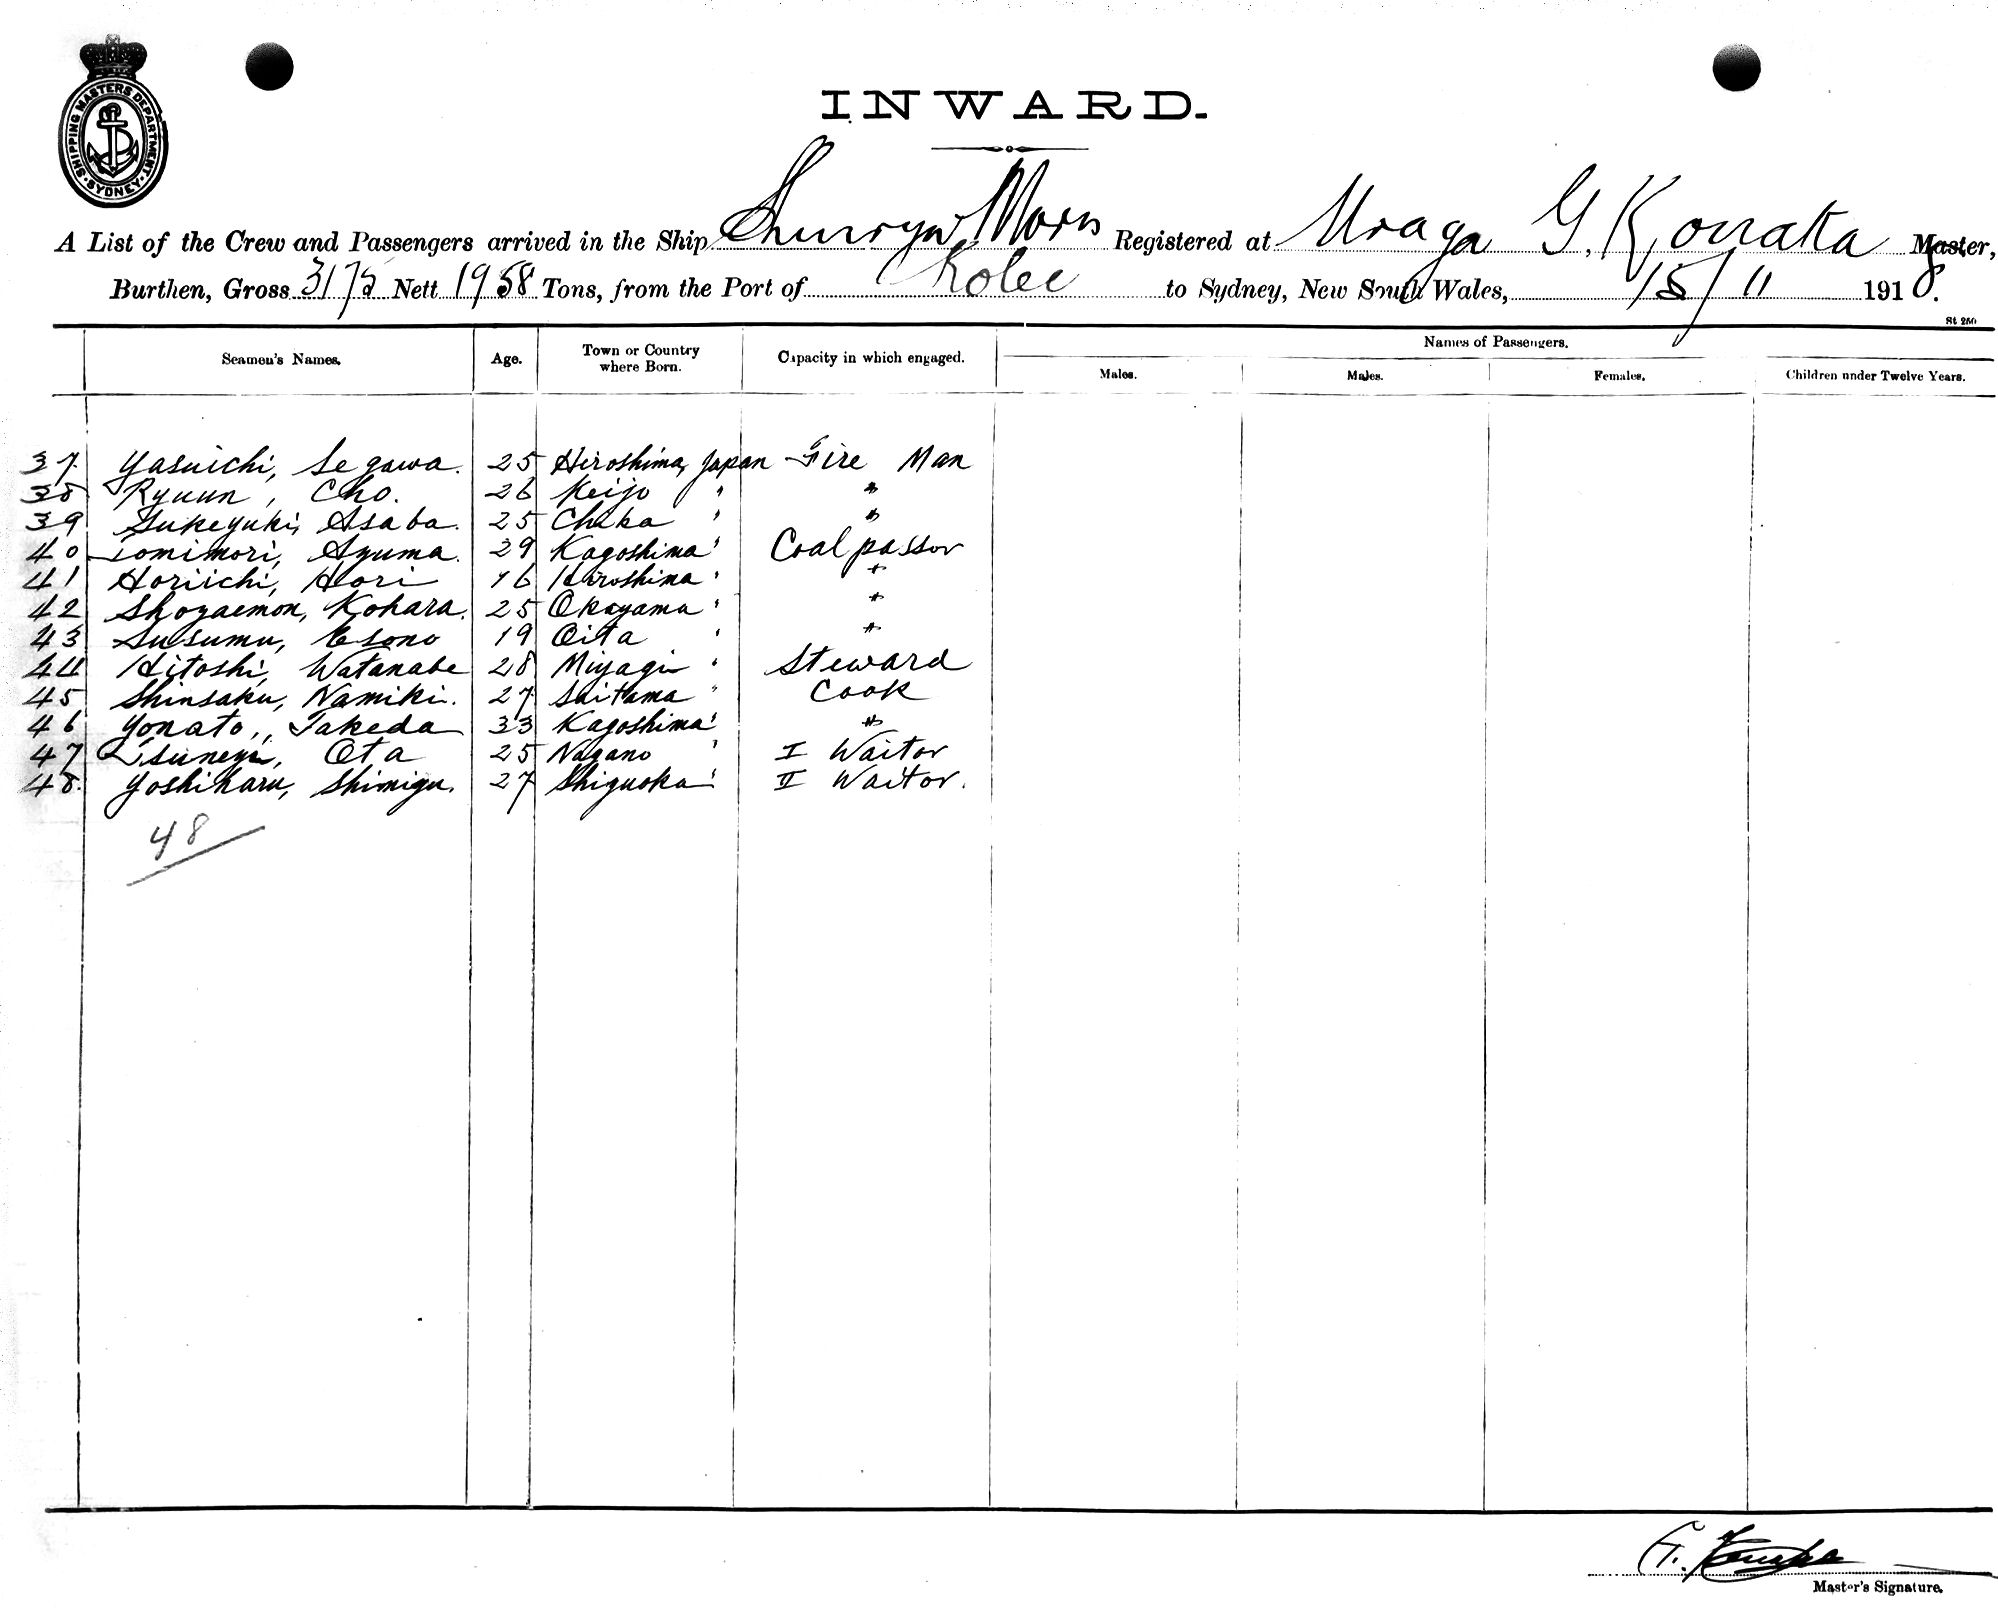 SHIPPING MASTERS DEPARTMENT
SYDNEY
INWARD.
A List of the Crew and Passengers arrived in the Ship Registered at Uraga G. Konaka Master,
Burthen, Gross 3175 Nett 1958 Tons, from the Port of Kobe to Sydney, New South Wales, 15/11 1918.
St 250
Seamen's Names. Age. Town or Country where Born. Capacity in which engaged. Names of Passengers.
Males. Males. Females. Children under Twelve Years.
37 Yasuichi, Segawa. 25 Hiroshima, Japan Fire Man
38 Ryuun, Cho. 26 Keijo " "
39 Sukeyuki, Asaba. 25 Chiba " "
40 Tomimori, Azuma. 29 Kagoshima " Coal passor
41 Horiichi, Hori 16 Hiroshima " "
42 Shozaemon, Kohara. 25 Okayama " "
43 Susumu, Esono 19 Oita " "
44 Hitoshi, Watanabe 28 Miyagi " Steward
45 Shinsaku, Namiki. 27 Saitama " Cook
46 Yonato, Takeda 33 Kagoshima " "
47 Ota 25 Nagano " I Waitor
48. Yoshiharu, Shimizu. 27 Shizuoka " II Waitor.
48
G. Konaka
Master's Signature.